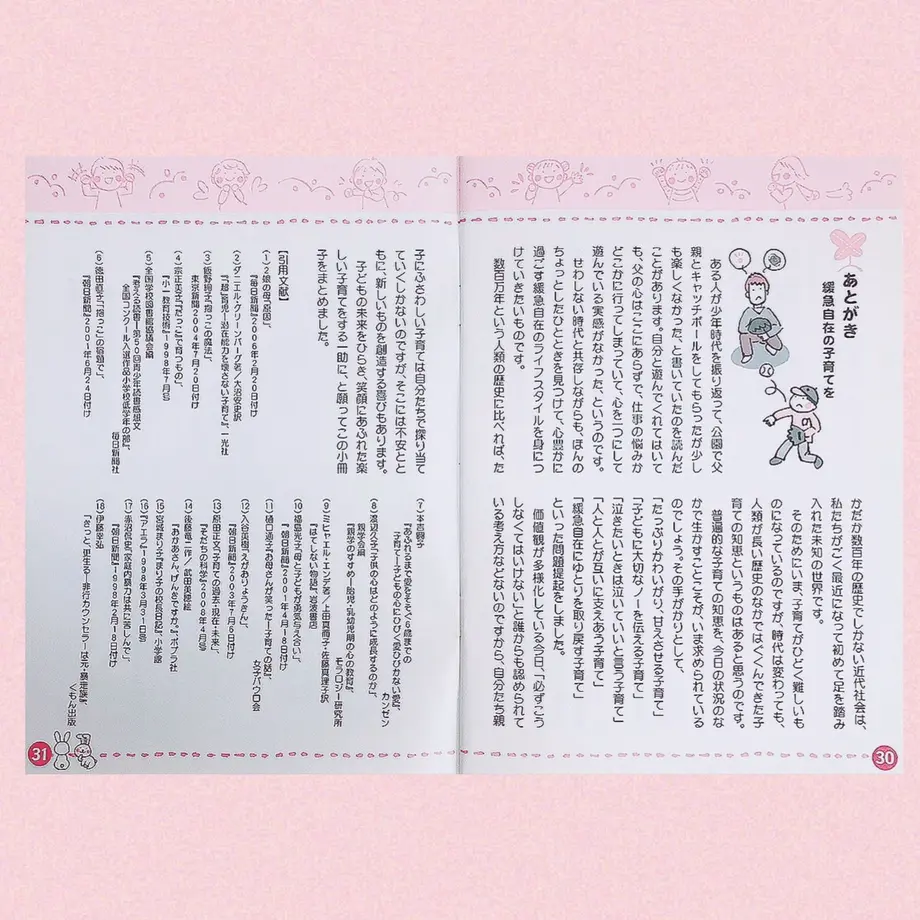 あとがき
緩急自在の子育てを
ある人が少年時代を振り返って、公園で父
親とキャッチボールをしてもらったが少し
も楽しくなかった、と書いていたのを読んだ
ことがあります。自分と遊んでくれてはいて
も、父の心はここにあらずで、仕事の悩みか
どこかに行ってしまっていて、心を一つにして
遊んでいる実感がなかった、というのです。
せわしない時代と共存しながらも、ほんの
ちょっとしたひとときを見つけて、心豊かに
過ごす緩急自在のライフスタイルを身につ
けていきたいものです。
数百万年という人類の歴史に比べれば、た
かだか数百年の歴史でしかない近代社会は、
私たちがごく最近になって初めて足を踏み
入れた未知の世界です。
そのためにいま、子育てがひどく難しいも
のになっているのですが、時代は変わっても、
人類が長い歴史のなかではぐくんできた子
育ての知恵というものはあると思うのです。
普遍的な子育ての知恵を、今日の状況のな
かで生かすことこそが、いま求められている
のでしょう。その手がかりとして、
「たっぷりかわいがり、甘えさせる子育て」
「子どもに大切なノーを伝える子育て」
「泣きたいときは泣いていいと言う子育て」
「人と人とが互いに支えあう子育て」
「緩急自在にゆとりを取り戻す子育て」
といった問題提起をしました。
価値観が多様化している今日、「必ずこう
しなくてはいけない」と誰からも認められて
いる考え方などないのですから、自分たち親
30
子にふさわしい子育ては自分たちで探り当て
ていくしかないのですが、そこには不安とと
もに、新しいものを創造する喜びもあります。
子どもの未来をひらく、笑顔にあふれた楽
しい子育てをする一助に、と願ってこの小冊
子をまとめました。
【引用文献】
(1)2娘の母「原因」、
『毎日新聞』2006年2月20日付け
(2)ダニエル・グリーンバーグ著/大沼安史訳
『「超」育児―潜在能力を壊さない子育て』、一光社
(3)飯野玲子「抱っこの魔法」、
東京新聞2004年7月20日付け
(4)宗正美子「「だっこ」で育つもの」、
『小一教育技術』1998年7月号
(5)全国学校図書館協議会編
『考える読書―第50回青少年読書感想文
全国コンクール入選作品小学校低学年の部』、
毎日新聞社
(6)徳田直子「抱っこの宿題で」、
『朝日新聞』2001年6月24日付け
(7)本吉圓子
『あふれるまで愛をそそぐ6歳までの
子育て―子どもの心にひびく愛ひびかない愛』、
カンゼン
(8)渡辺久子「子供の心はどのように成長するのか」、
親学会編
『親学のすすめ―胎児・乳幼児期の心の教育』、
モラロジー研究所
(9)ミヒャエル・エンデ著/上田真而子・佐藤真理子訳
『はてしない物語』、岩波書店
(10)福島光子「母と子どもが勇気与え合い」、
『朝日新聞』2001年4月18日付け
(11)樋口通子『お母さんが笑った―子育ての話』、
女子パウロ会
(12)入谷英樹「えがありょうきん」、
『朝日新聞』2003年7月6日付け
(13)原田正文「子育ての過去・現在・未来」、
『そだちの科学』2008年4月号
(14)後藤竜二作/武田美穂絵
『おかあさん、げんきですか。』、ポプラ社
(15)宮城まり子『まり子の校長日記』、小学館
(16)『アエラ』1998年3月31日号
(17)赤沼侃史「家庭内暴力は共に苦しんで」、
『朝日新聞』1998年2月18日付け
(18)伊藤幸弘
『きっと、更生る!―非行カウンセラーは元・暴走族』、
くもん出版
31